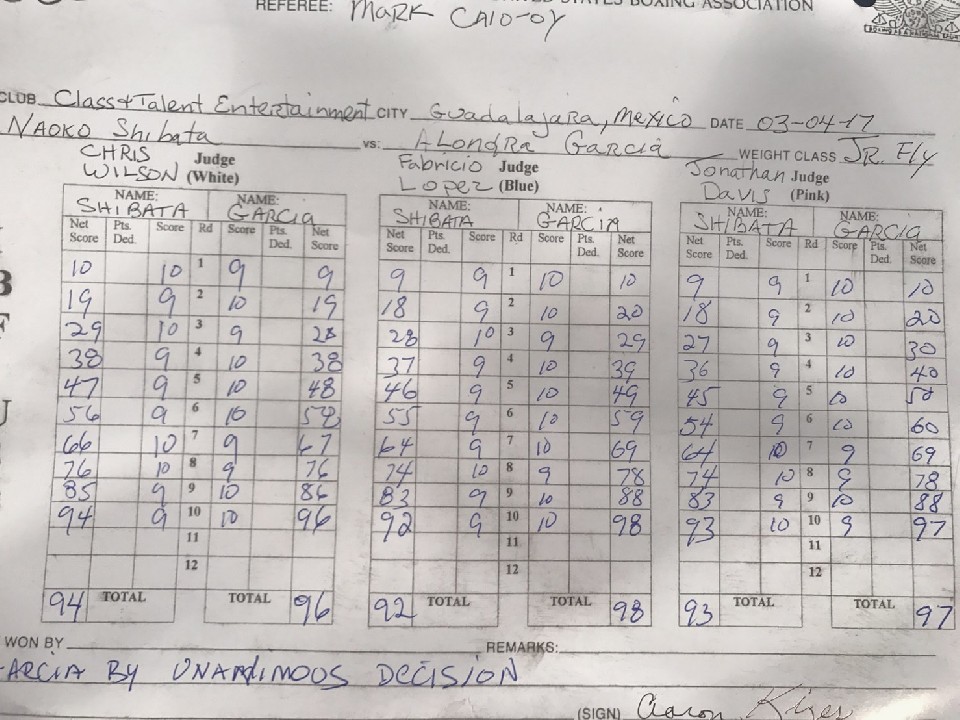 REFEREE: MARK CALO-OY
STATES BOXING ASSOCIATION
CLUB Class & Talent Entertainment CITY Guadalajara, Mexico DATE 03-04-17
NAOKO Shibata vs: ALONDRA GARCIA WEIGHT CLASS JR. Fly
CHRIS WILSON Judge (White)
NAME: SHIBATA NAME: GARCIA
Net Score Pts. Ded. Score Rd Score Pts. Ded. Net Score
10 10 1 9 9
19 9 2 10 19
29 10 3 9 28
38 9 4 10 38
47 9 5 10 48
56 9 6 10 58
66 10 7 9 67
76 10 8 9 76
85 9 9 10 86
94 9 10 10 96
11
12
94 TOTAL TOTAL 96
Fabricio Lopez Judge (Blue)
NAME: SHIBATA NAME: GARCIA
Net Score Pts. Ded. Score Rd Score Pts. Ded. Net Score
9 9 1 10 10
18 9 2 10 20
28 10 3 9 29
37 9 4 10 39
46 9 5 10 49
55 9 6 10 59
64 9 7 10 69
74 10 8 9 78
83 9 9 10 88
92 9 10 10 98
11
12
92 TOTAL TOTAL 98
Jonathan Davis Judge (Pink)
NAME: SHIBATA NAME: GARCIA
Net Score Pts. Ded. Score Rd Score Pts. Ded. Net Score
9 9 1 10 10
18 9 2 10 20
27 9 3 10 30
36 9 4 10 40
45 9 5 10 50
54 9 6 10 60
64 10 7 9 69
74 10 8 9 78
83 9 9 10 88
93 10 10 9 97
11
12
93 TOTAL TOTAL 97
WON BY REMARKS:
ARCIA BY UNANIMOOS DECISION
(SIGN) Aaron Kizer